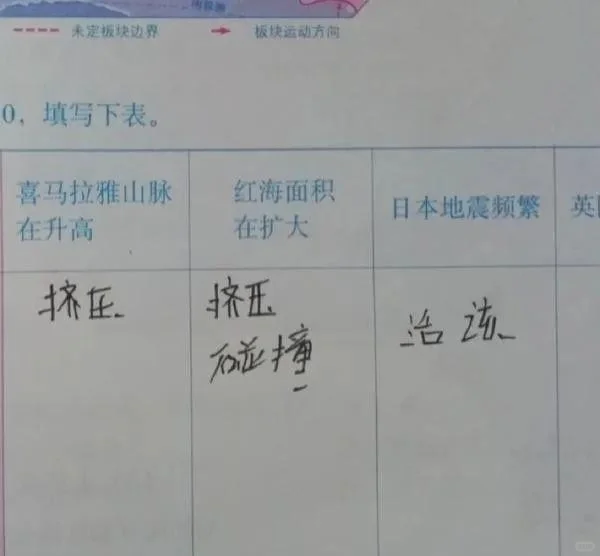 未定板块边界 板块运动方向
0，填写下表。
喜马拉雅山脉
在升高
红海面积
在扩大
日本地震频繁
挤压
挤压
碰撞
活该